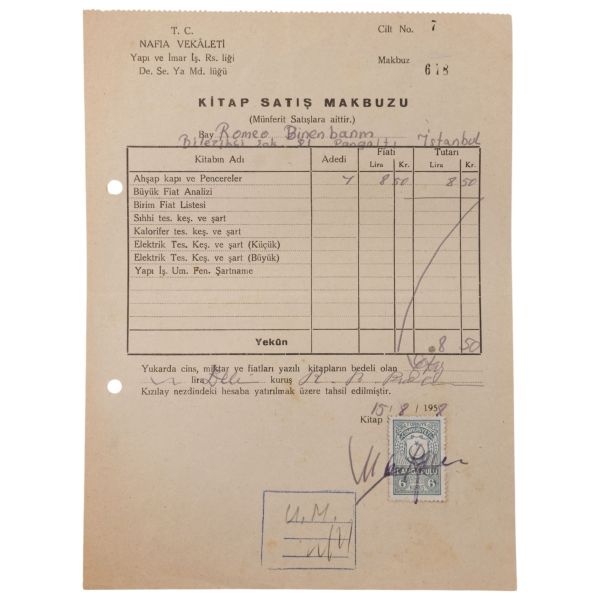 T. C.
NAFIA VEKÂLETİ
Yapı ve İmar İş. Rs. liği
De. Se. Ya Md. lüğü
Cilt No. 7
Makbuz 678
KİTAP SATIŞ MAKBUZU
(Münferit Satışlara aittir.)
Bay Romeo Binenbaum
sok. 21 Pangaltı İstanbul
Kitabın Adı Adedi Fiatı Tutarı
Lira Kr. Lira Kr.
Ahşap kapı ve Pencereler 1 8 50 8 50
Büyük Fiat Analizi
Birim Fiat Listesi
Sıhhi tes. keş. ve şart
Kalorifer tes. keş. ve şart
Elektrik Tes. Keş. ve şart (Küçük)
Elektrik Tes. Keş. ve şart (Büyük)
Yapı İş. Um. Fen. Şartname
Yekûn 8 50
Yukarda cins, miktar ve fiatları yazılı kitapların bedeli olan
lira kuruş
Kızılay nezdindeki hesaba yatırılmak üzere tahsil edilmiştir.
15/8/1958
Kitap
DAMGA PULU
6 6